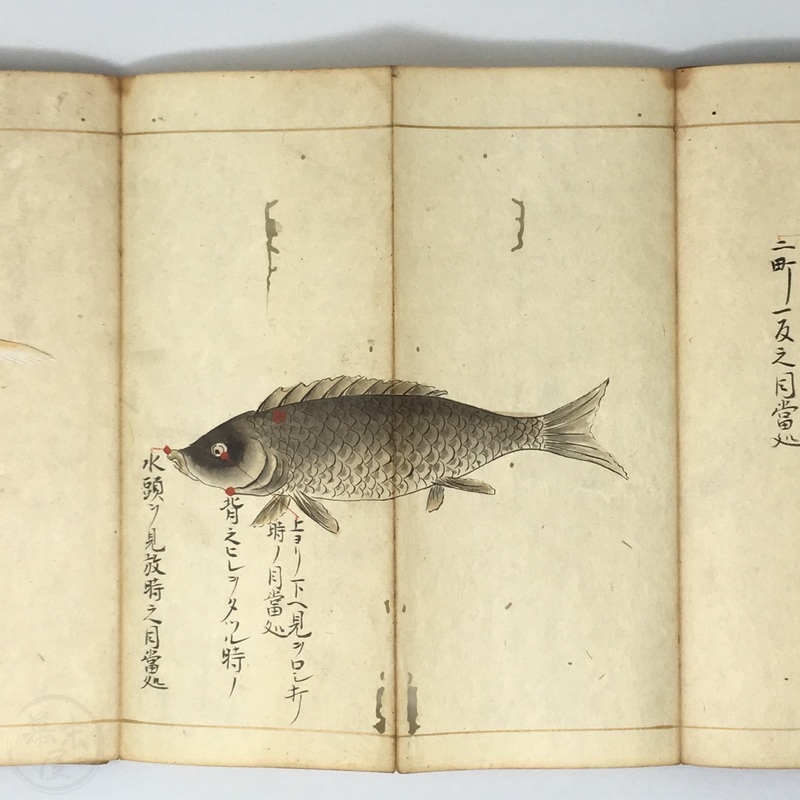 二町一反之目當処
上ヨリ下ヘ見ヲロシキノ
時ノ目當処
背之ヒレヲタツル時ノ
水頭ヲ見放時之目當処